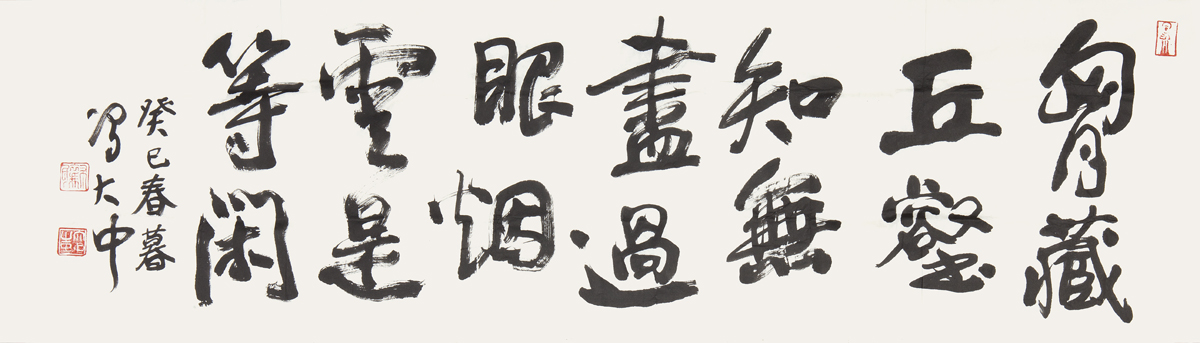 胷藏
丘壑
知無
盡過
眼烟
雲是
等閑
癸巳春暮
馮大中